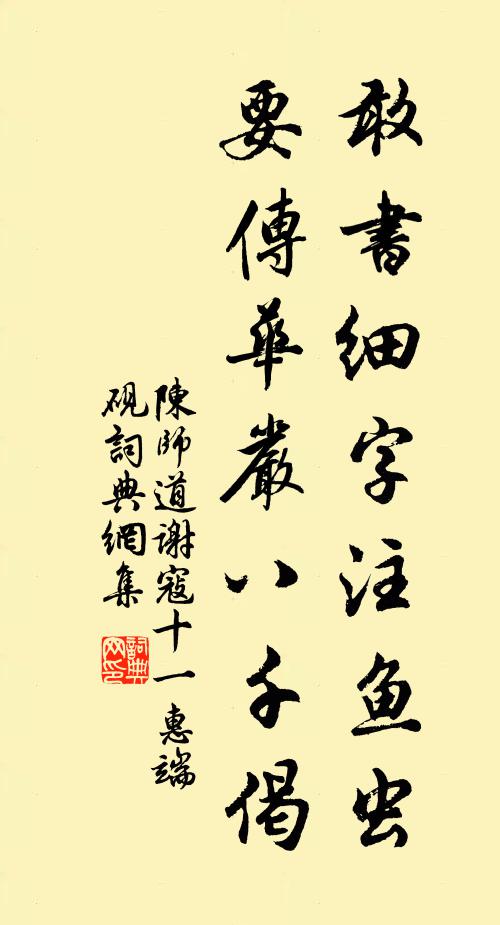 敢書細字注鱼虫
要傳華嚴八千偈
陳師道謝寇十一惠端
硯詞典網集
詞典
网印